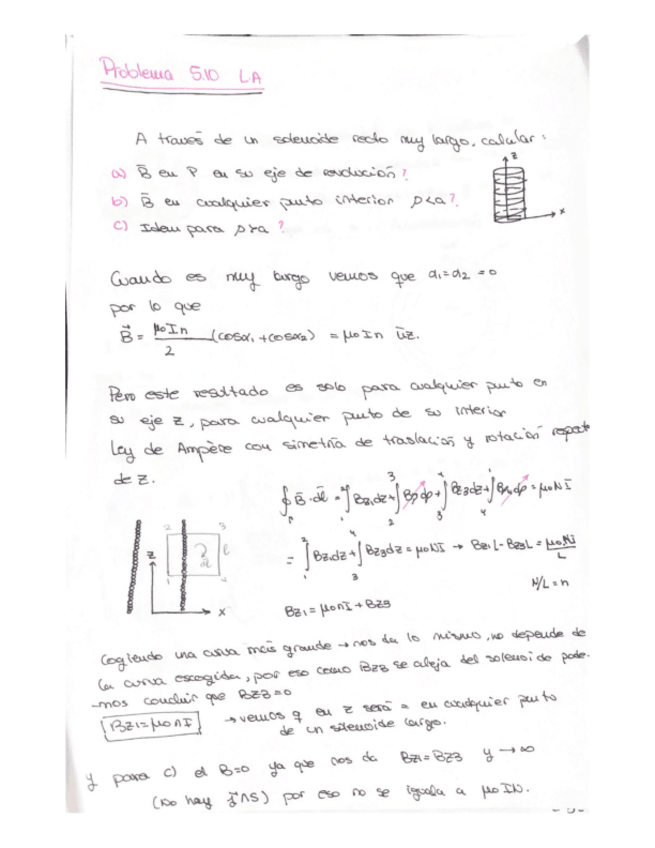 Problema 5.10 LA
A través de un solenoide recto muy largo, calcular:
a) B̄ en P en su eje de revolución?
b) B̄ en cualquier punto interior ρ<a?
c) Idem para ρ>a?
z
x
Cuando es muy largo vemos que α₁=α₂=0
por lo que
B⃗ = μ₀In/2 (cosα₁+cosα₂) = μ₀In ūz.
Pero este resultado es solo para cualquier punto en
su eje z, para cualquier punto de su interior
Ley de Ampère con simetría de traslación y rotación respecto
de z.
∮ B̄·d̄l = ∫₁² Bz₁dz + ∫₂³ Bρdρ + ∫₃⁴ Bz3dz + ∫₄¹ Bρdρ = μ₀NI
= ∫₁² Bz₁dz + ∫₃⁴ Bz3dz = μ₀NI → Bz₁L - Bz3L = μ₀NI/L
N/L = n
Bz₁ = μ₀nI + Bz3
2 3
z l
1 4
x
Cogiendo una curva más grande → nos da lo mismo, no depende de
la curva escogida, por eso como Bz3 se aleja del solenoide pode-
-mos concluir que Bz3=0
Bz₁=μ₀nI → vemos q en z será = en cualquier punto
de un solenoide largo.
y para c) el B=0 ya que nos da Bz₁=Bz3 y → ∞
(No hay j⃗∧S) por eso no se iguala a μ₀IN.